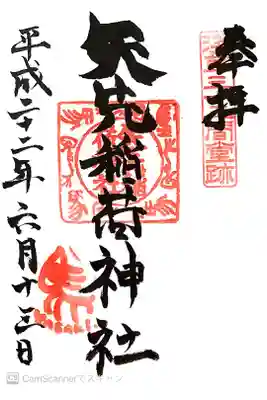 奉拝
浅草三十三間堂跡
矢先稲荷神社
平成二十二年六月十三日
CamScannerでスキャン